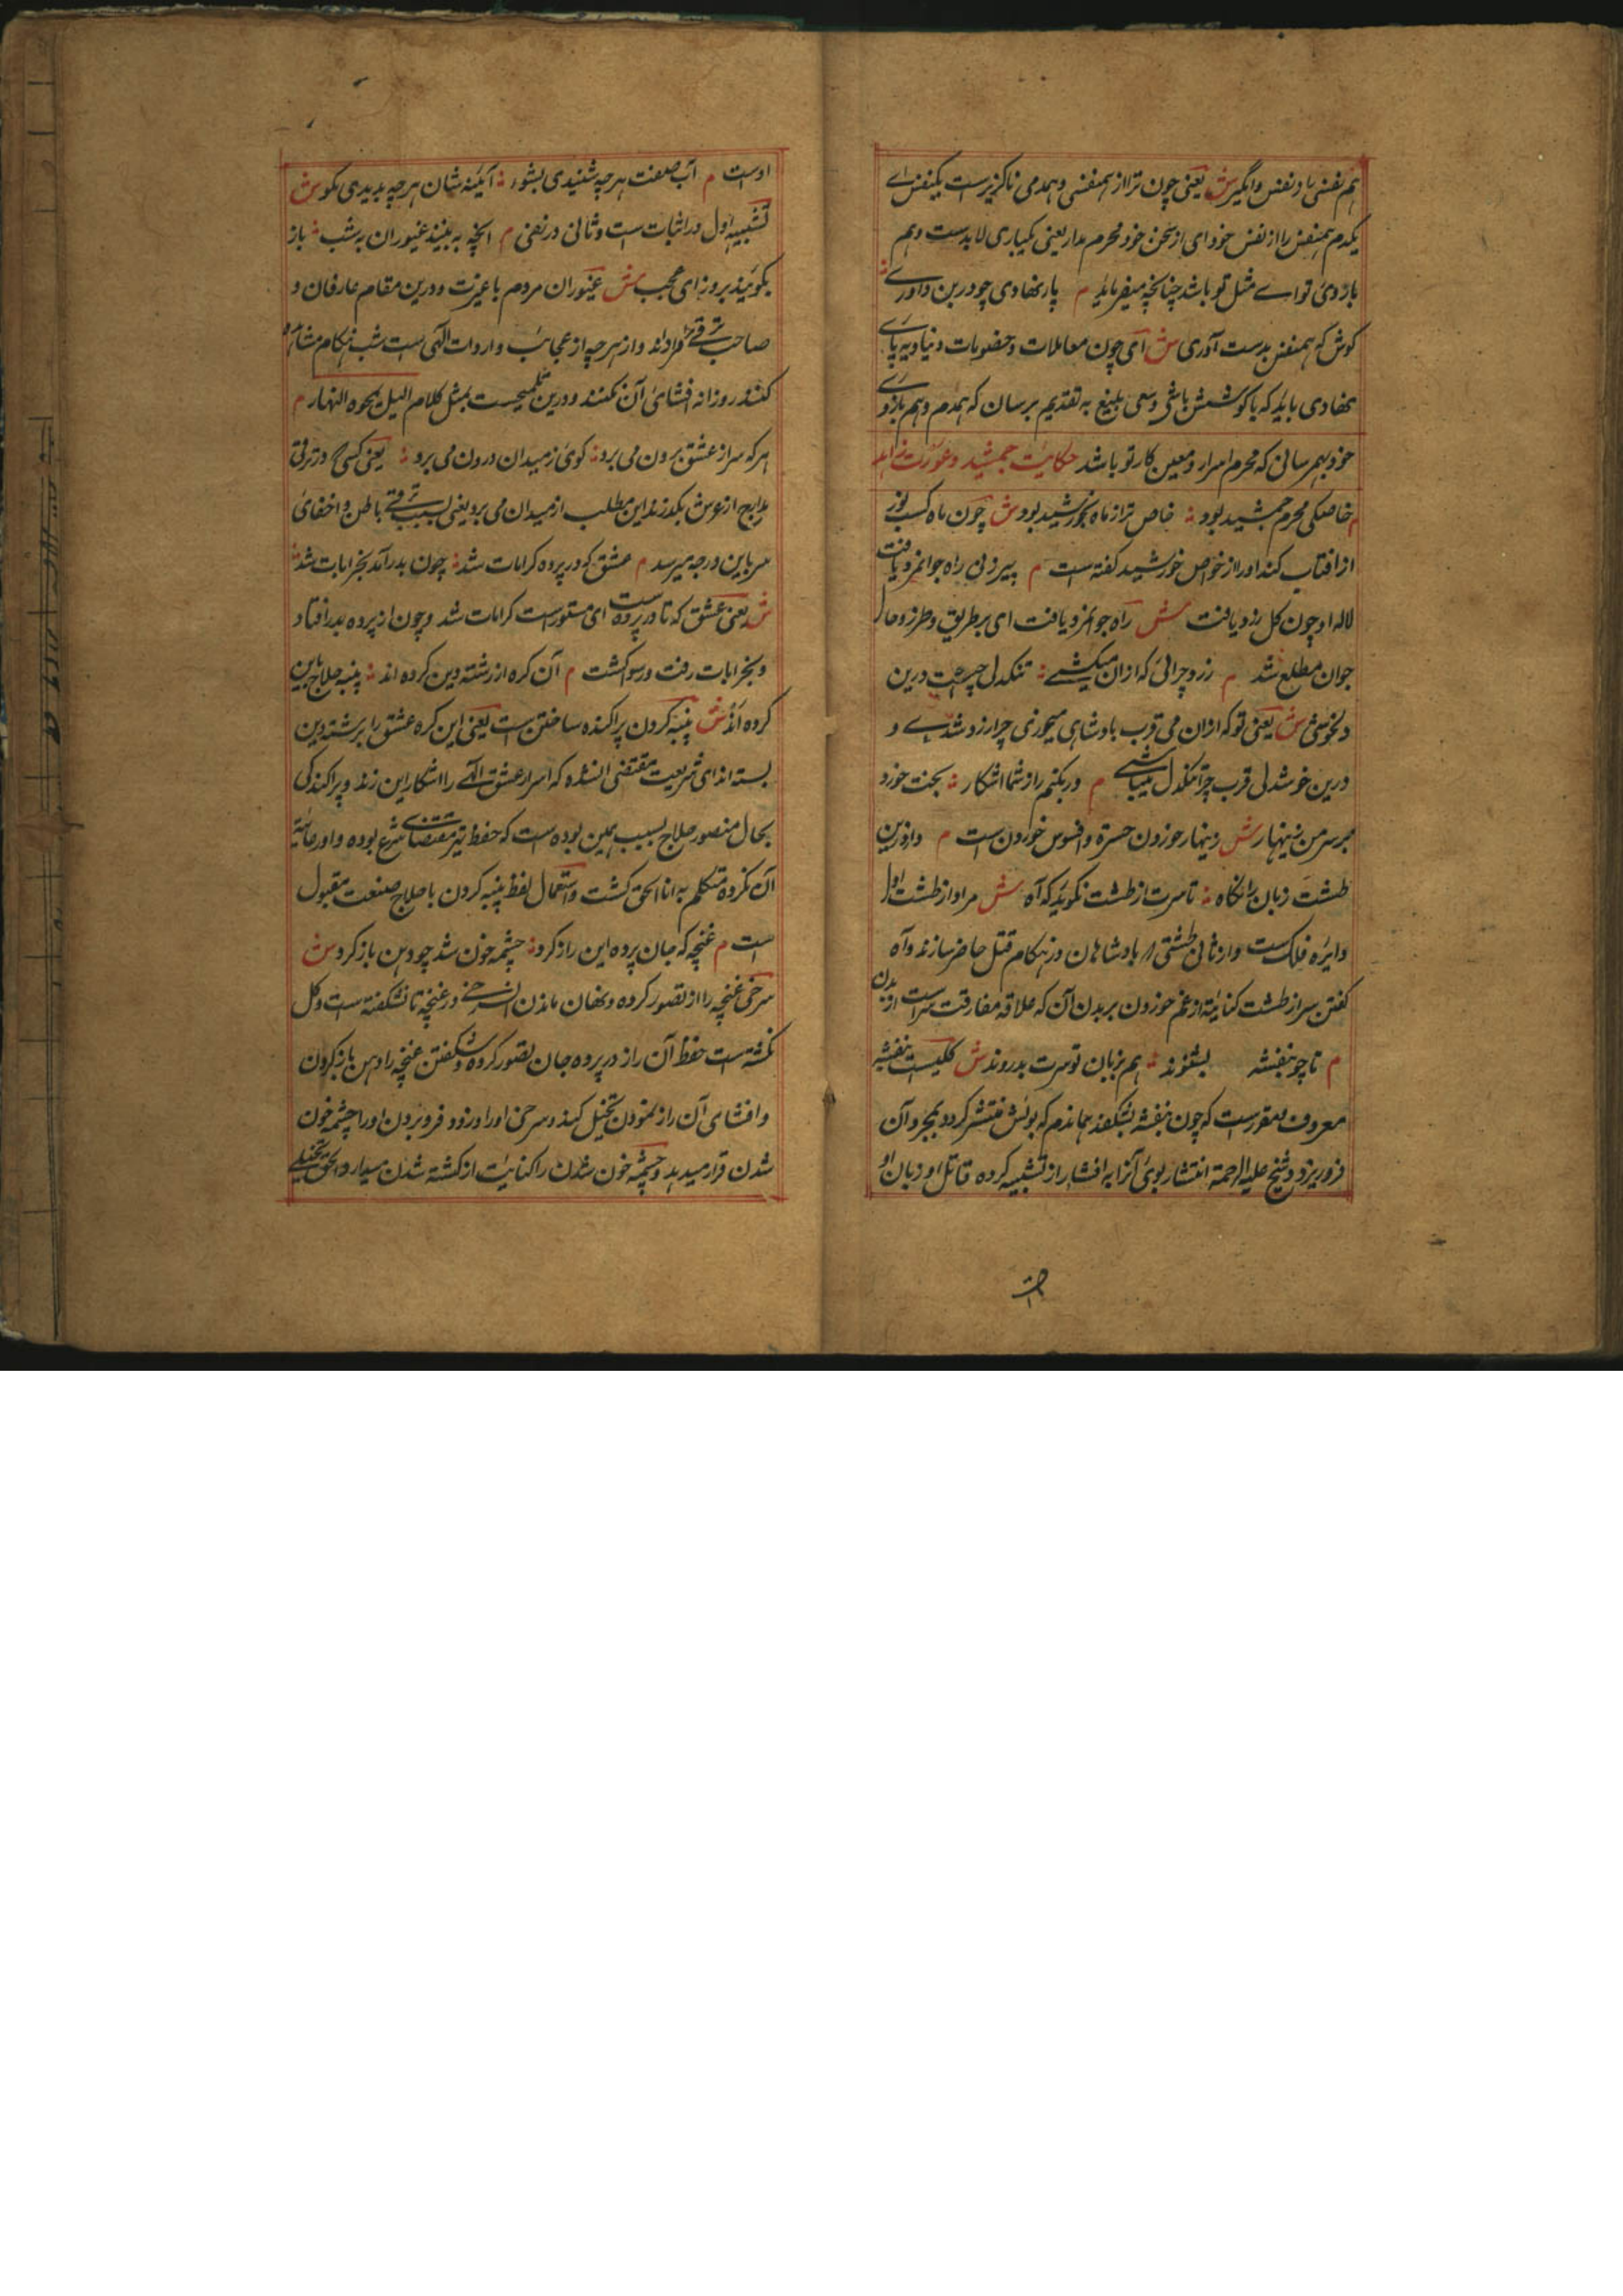 هم نفسی یاد نفس واگیر ش یعنی چون ترا از همنفسی و همدمی ناگزیرست یکنفس اے
یکدم همنفس را از نفس خود ای از سخن خود محرم مدار یعنی یکباری لابدست و هم
بازوی تو اے مثل تو باشد چنانچه میفرماید م پا نهادی چو درین داوری
کوش که همنفس بدست آوری ش ای چون معاملات و خصومات دنیاویه پای
نهادی باید که با کوشش باشی و سعی بلیغ به تقدیم برسان که همدم و هم بازوی
خود بهم رسانی که محرم اسرار و معین کار تو باشد حکایت جمشید و عورت
م خاصگی محرم جمشید بود خاص تر از ماه بخورشید بود ش چون ماه کسب نور
از افتاب کند او را از خواص خورشید گفته ست م پیرزنی راه جوانمرد یافت
لاله او چون گل زرد یافت ش راه جوانمرد یافت ای بر طریق و طرز و حال
جوان مطلع شد م زرد چرائی که ازان میکشی تنگدلی چیست درین
دلخوشی ش یعنی تو که ازان می قرب بادشاهی میخوری چرا زرد شدے و
درین خوشدلی قرب چرا تنگدل میباشی م ور بکنم راز شما اشکار بخت خورد
بر سر من زینهار ش زینهار خوردن حسرة و افسوس خوردن است م
طشت زبان را نگاه تا سرت از طشت نگوید که آه ش مراد از طشت اول
دایره فلک ست و از ثانی طشتی که بادشاهان در هنگام قتل حاضر سازند و آه
گفتن سر از طشت کنایة از غم خوردن بریدن آن که علاقه مفارقت سراست از بدن
م تا چو بنفشه بشنوند هم بزبان تو سرت بدروند ش کلیست بنفشه
معروف مقررست که چون بنفشه بشکفد هماندم که بویش منتشر گردد بمجرد آن
فرو ریزد و شیخ علیه الرحمة انتشار بوی آنرا به افشای راز تشبیه کرده قاتل او زبان او
اوست م آب صفت هرچه شنیدی بشوی آینه شان هرچه بدیدی مگو ش
تشبیه اول در اثبات ست و ثانی در نفی م انچه به بینند غیوران به شب باز
نگویند بروز ای عجب ش غیوران مردم با غیرت و درین مقام عارفان و
صاحب ترقی مرادند و از هرچه از عجائب و اردات الهی ست شب هنگام مشاهده
کنند روزانه افشای آن نکنند و درین تلمیحیست بمثل کلام اللیل یمحوه النهار م
هر که سر از عشق برون می برد گوی ز میدان درون می برد یعنی کسی که در ترقی
مدارج از عرش بگذرند این مطلب از میدان می برد یعنی بسبب ترقی باطن و اخفای
سر باین درجه میرسد م عشق که در پرده کرامات شد چون بدر آمد بخرابات شد
ش یعنی عشق که تا در پرده است ای مستور است کرامات شد و چون از پرده بدر افتاد
و بخرابات رفت و رسوا گشت م آن گره از رشته دین کرده اند پنبه حلاج باین
کرده اند ش پنبه کردن پراکنده ساختن ست یعنی این گره عشق را بر شته دین
بسته اند ای شریعت مقتضی الشده که اسرار عشق الهی را اشکار این زند و پراگندگی
بحال منصور حلاج بسبب همین بوده ست که حفظ مقتضای شرع بوده و او رعایة
آن نکرده متکلم به انا الحق گشت و استعمال لفظ پنبه کردن با حلاج صنعت مقبول
است م غنچه که جان پرده این راز کرد چشمه خون شد چو دهن باز کرد ش
سرخی غنچه را از تصور کرده و نهان ماندن آن سرخی در غنچه تا نشکفته ست و گل
نگشته ست حفظ آن راز در پرده جان تصور کرده و شگفتن غنچه را دهن باز کردن
و افشای آن راز نمودن تخیل کند و سرخی او را و زود فرو بردن او را چشمه خون
شدن قرار میدهد و چشمه خون شدن را کنایت از کشته شدن میدارد الحق تخیلے